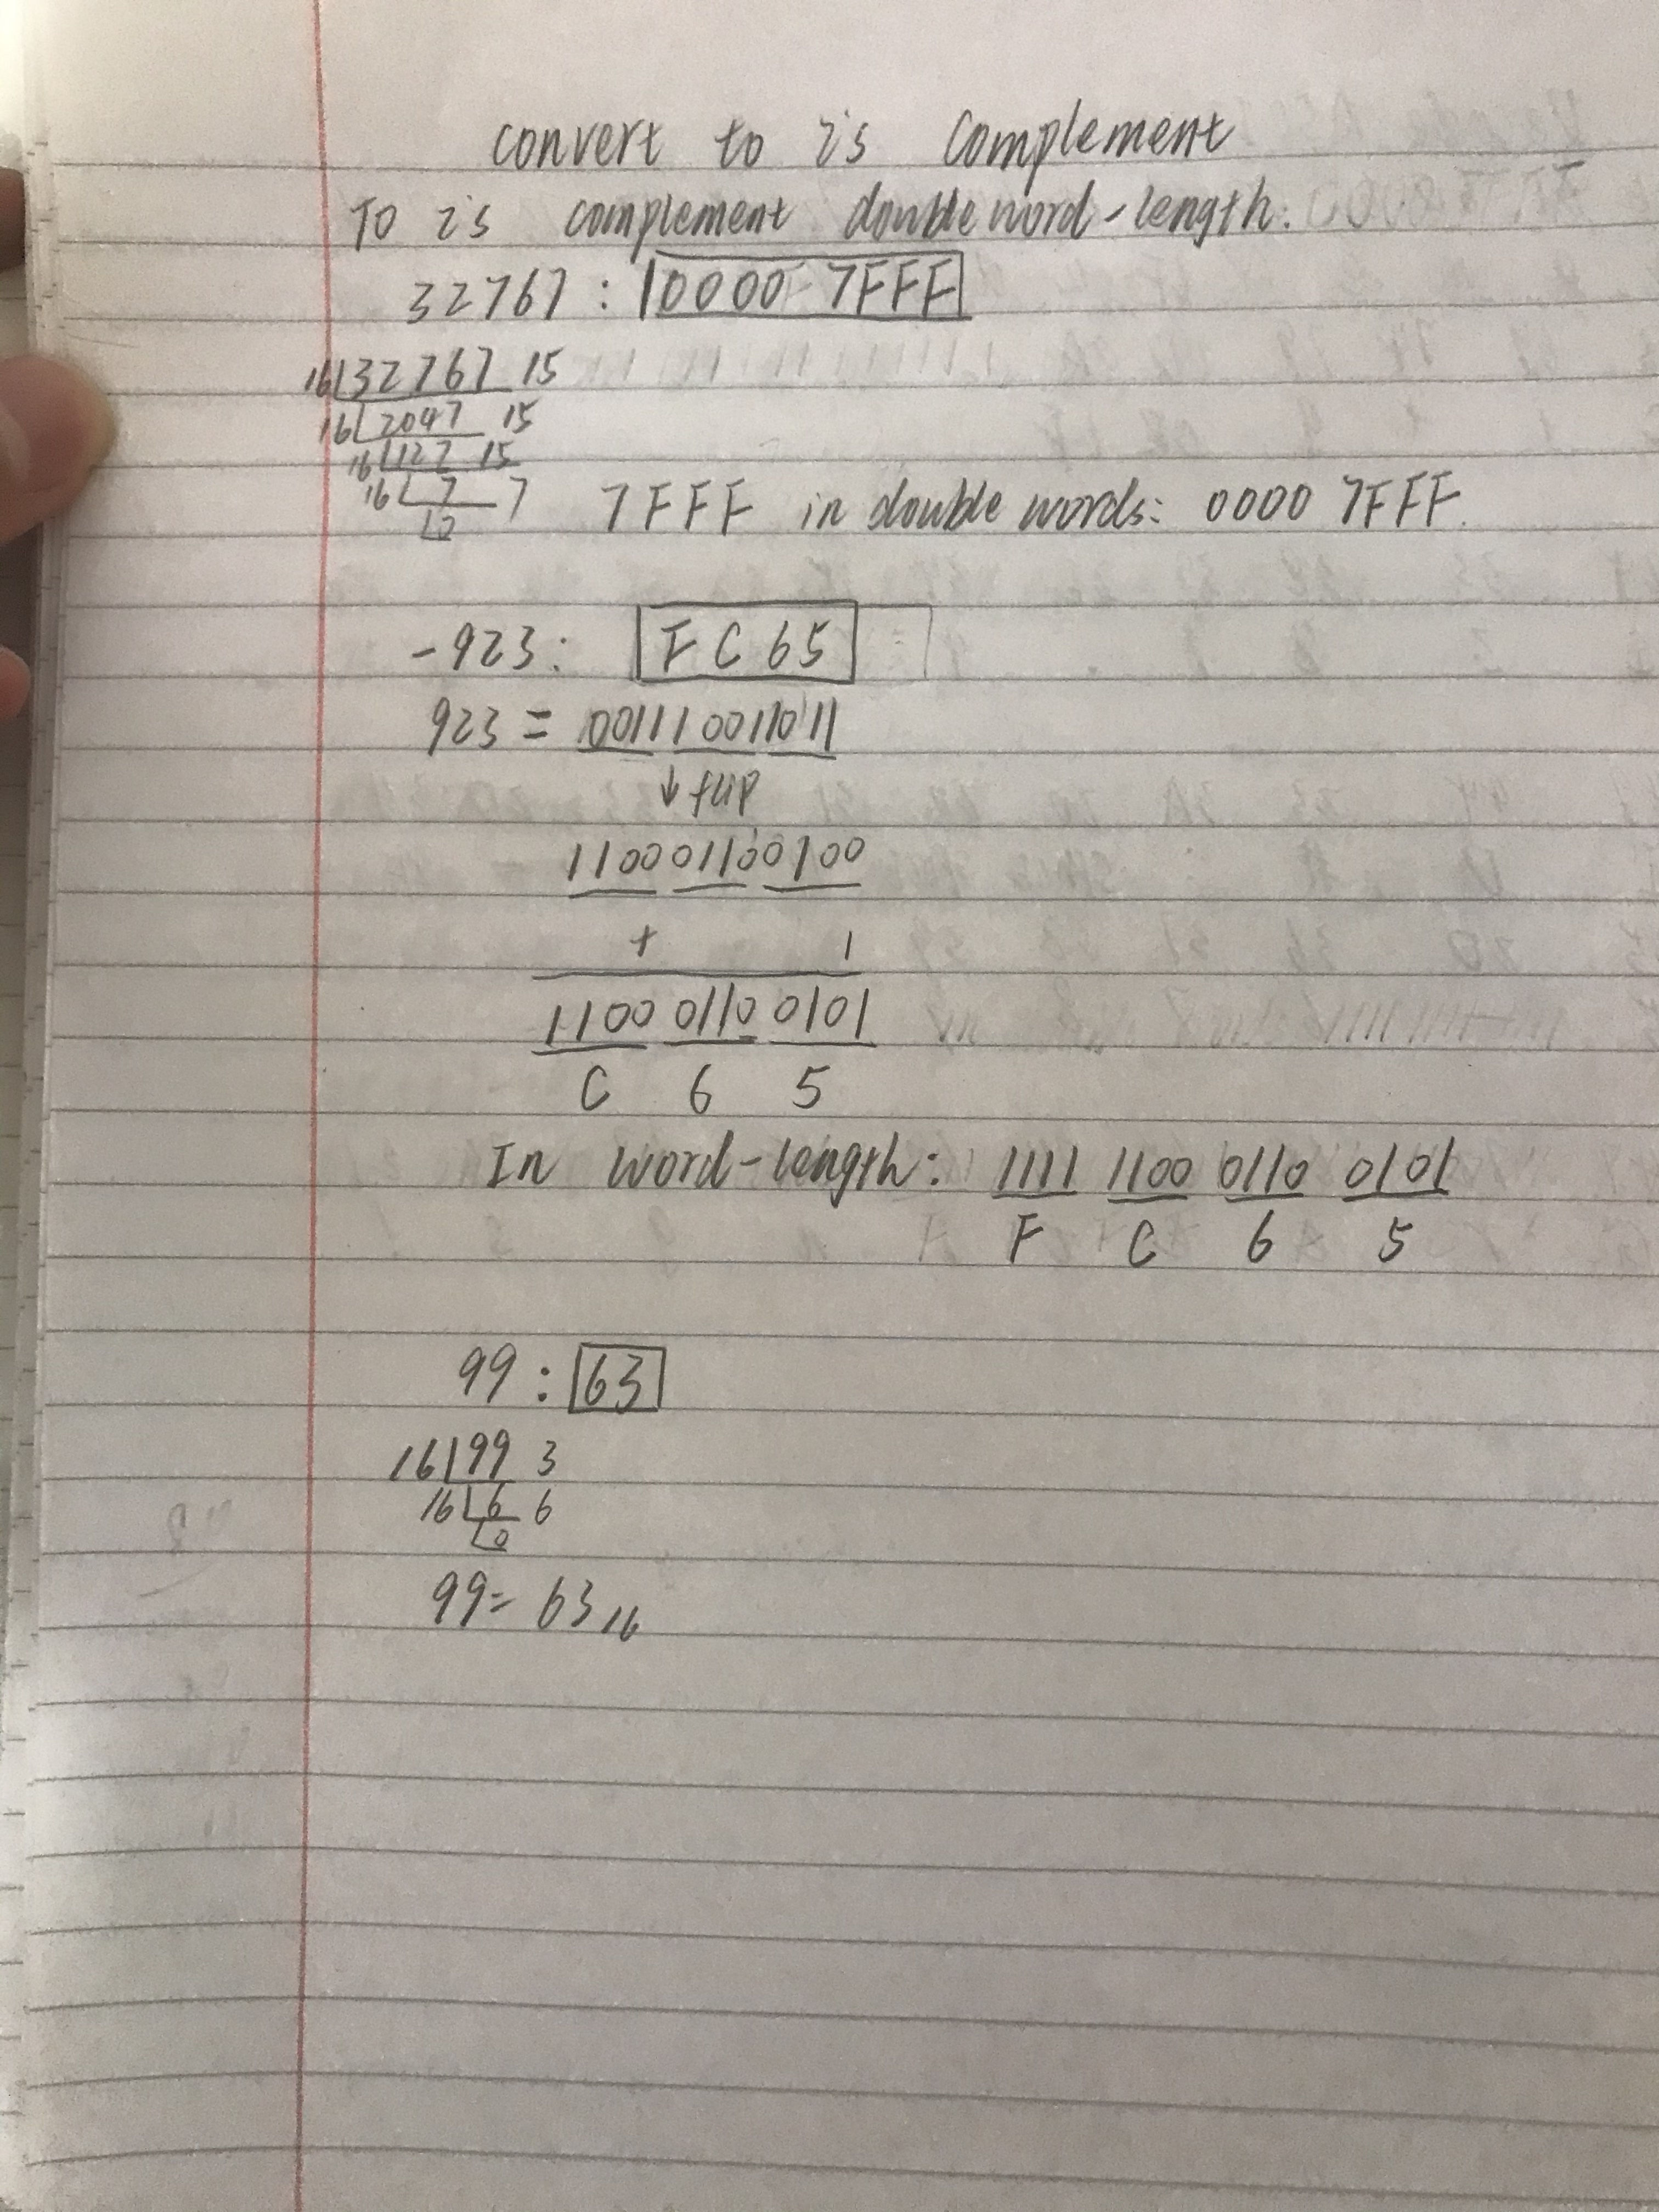 convert to 2's complement
To 2's complement double word-length:
32767 : 0000 7FFF
16 32767 15
16 2047 15
16 127 15
16 7 7
0
7FFF in double words: 0000 7FFF.
-923: FC65
923 = 001110011011
↓ flip
110001100100
+ 1
1100 0110 0101
C 6 5
In word-length: 1111 1100 0110 0101
F C 6 5
99 : 63
16 99 3
16 6 6
0
99 = 63 16